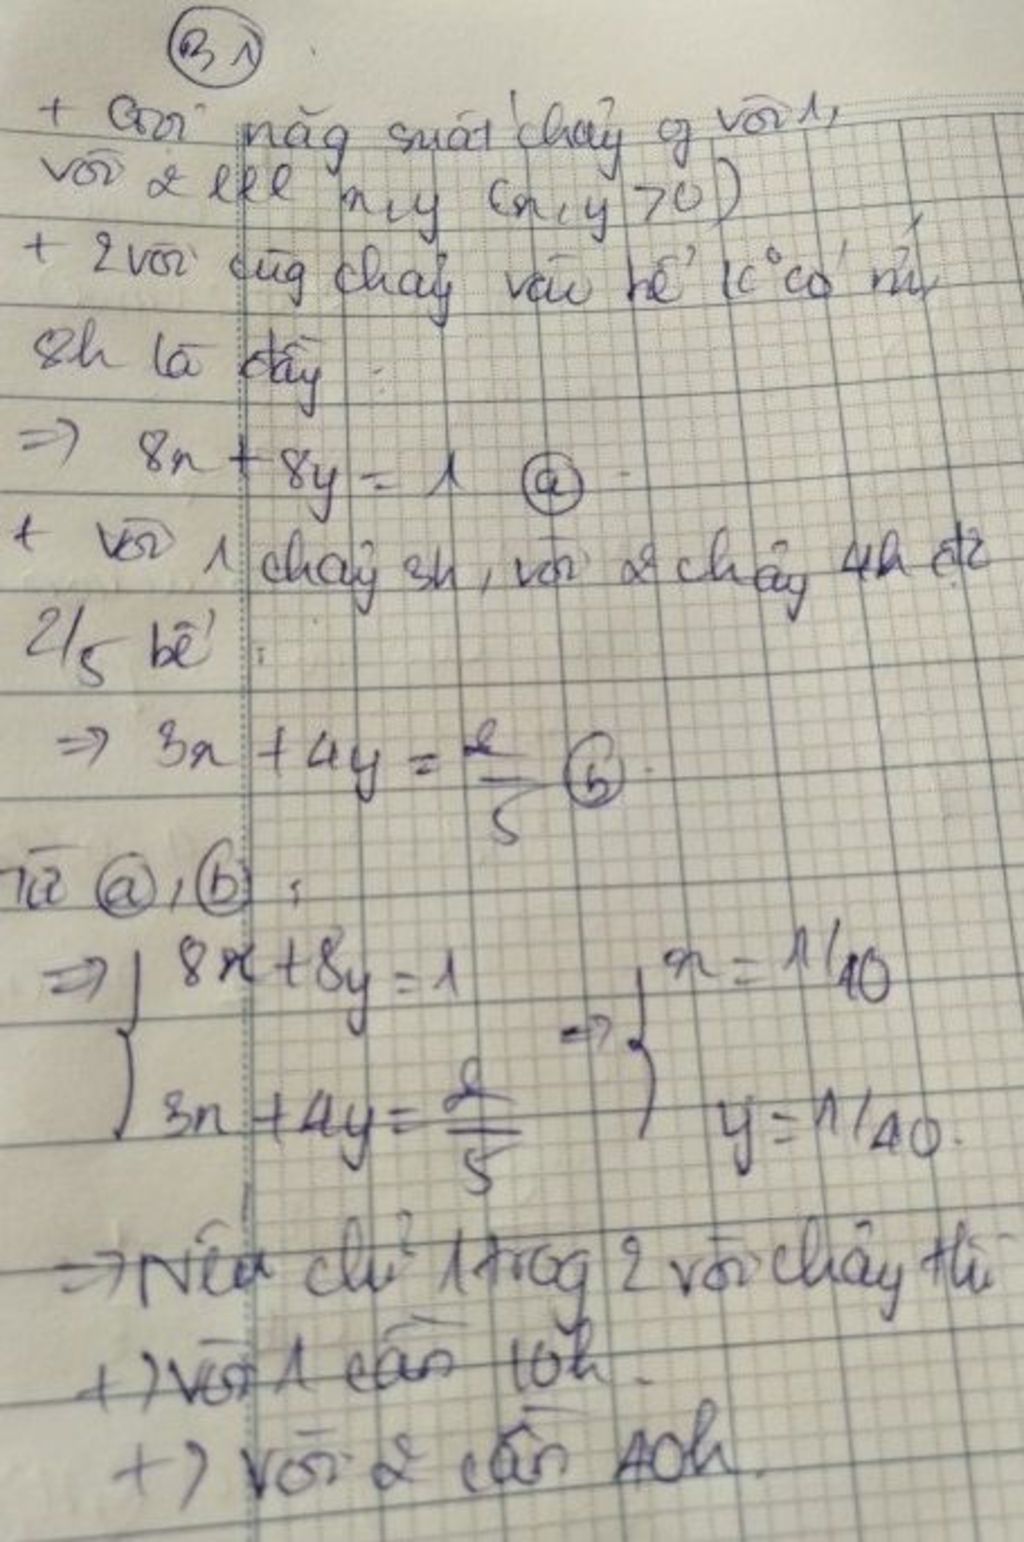 B1
+ Gọi năg suất chảy of vòi 1,
vòi 2 lll x,y (x,y >0)
+ 2 vòi cùg chảy vào bể k° có nc,
8h là đầy
=> 8x + 8y = 1 (a)
+ Vòi 1 chảy 3h, vòi 2 chảy 4h đc
2/5 bể :
=> 3x + 4y = 2/5 (b)
Từ (a), (b) :
=> { 8x + 8y = 1 => { x = 1/10
3x + 4y = 2/5 y = 1/40
=> Nếu chỉ 1 trog 2 vòi chảy thì
+) vòi 1 cần 10h.
+) vòi 2 cần 40h.